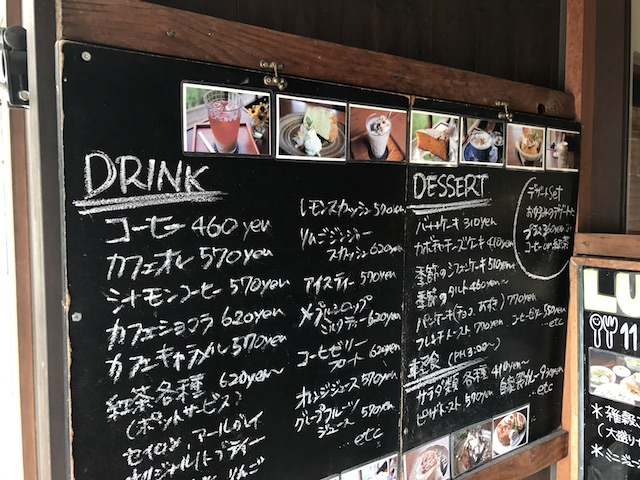 DRINK
コーヒー 460yen
カフェオレ 570yen
シナモンコーヒー 570yen
カフェショコラ 620yen
カフェキャラメル 570yen
紅茶各種 620yen~
(ポットサービス)
セイロン、アールグレイ
オリジナルハーブティー
りんご
レモンスカッシュ 570yen
りんごジンジャー
スカッシュ 620yen
アイスティー 570yen
メープルシロップ
ミルクティー 620yen
コーヒーゼリー
フロート 620yen
オレンジジュース 570yen
グレープフルーツ
ジュース 570yen
...etc
DESSERT
バナナケーキ 310yen
カボチャチーズケーキ 410yen
季節のシフォンケーキ 510yen
季節のタルト 460yen~
パンケーキ(チョコ、あずき) 770yen
フレンチトースト 770yen コーヒーゼリー 550yen
...etc
軽食 (PM3:00~)
サラダ類 各種 410yen~
ピザトースト 570yen 自家製カレー 930yen
...etc
デザートset
お好きなデザートに
プラス360yenで
コーヒー or 紅茶
LU
11
*雑穀
(大盛り
*ミニ